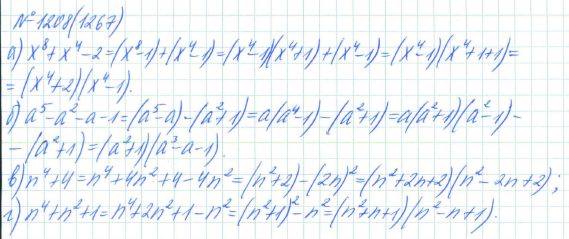 № 1208(1267)
а) x⁸+x⁴-2=(x⁸-1)+(x⁴-1)=(x⁴-1)(x⁴+1)+(x⁴-1)=(x⁴-1)(x⁴+1+1)=
=(x⁴+2)(x⁴-1).
б) a⁵-a²-a-1=(a⁵-a)-(a²+1)=a(a⁴-1)-(a²+1)=a(a²+1)(a²-1)-
-(a²+1)=(a²+1)(a³-a-1).
в) n⁴+4=n⁴+4n²+4-4n²=(n²+2)-(2n)²=(n²+2n+2)(n²-2n+2);
г) n⁴+n²+1=n⁴+2n²+1-n²=(n²+1)²-n²=(n²+n+1)(n²-n+1).